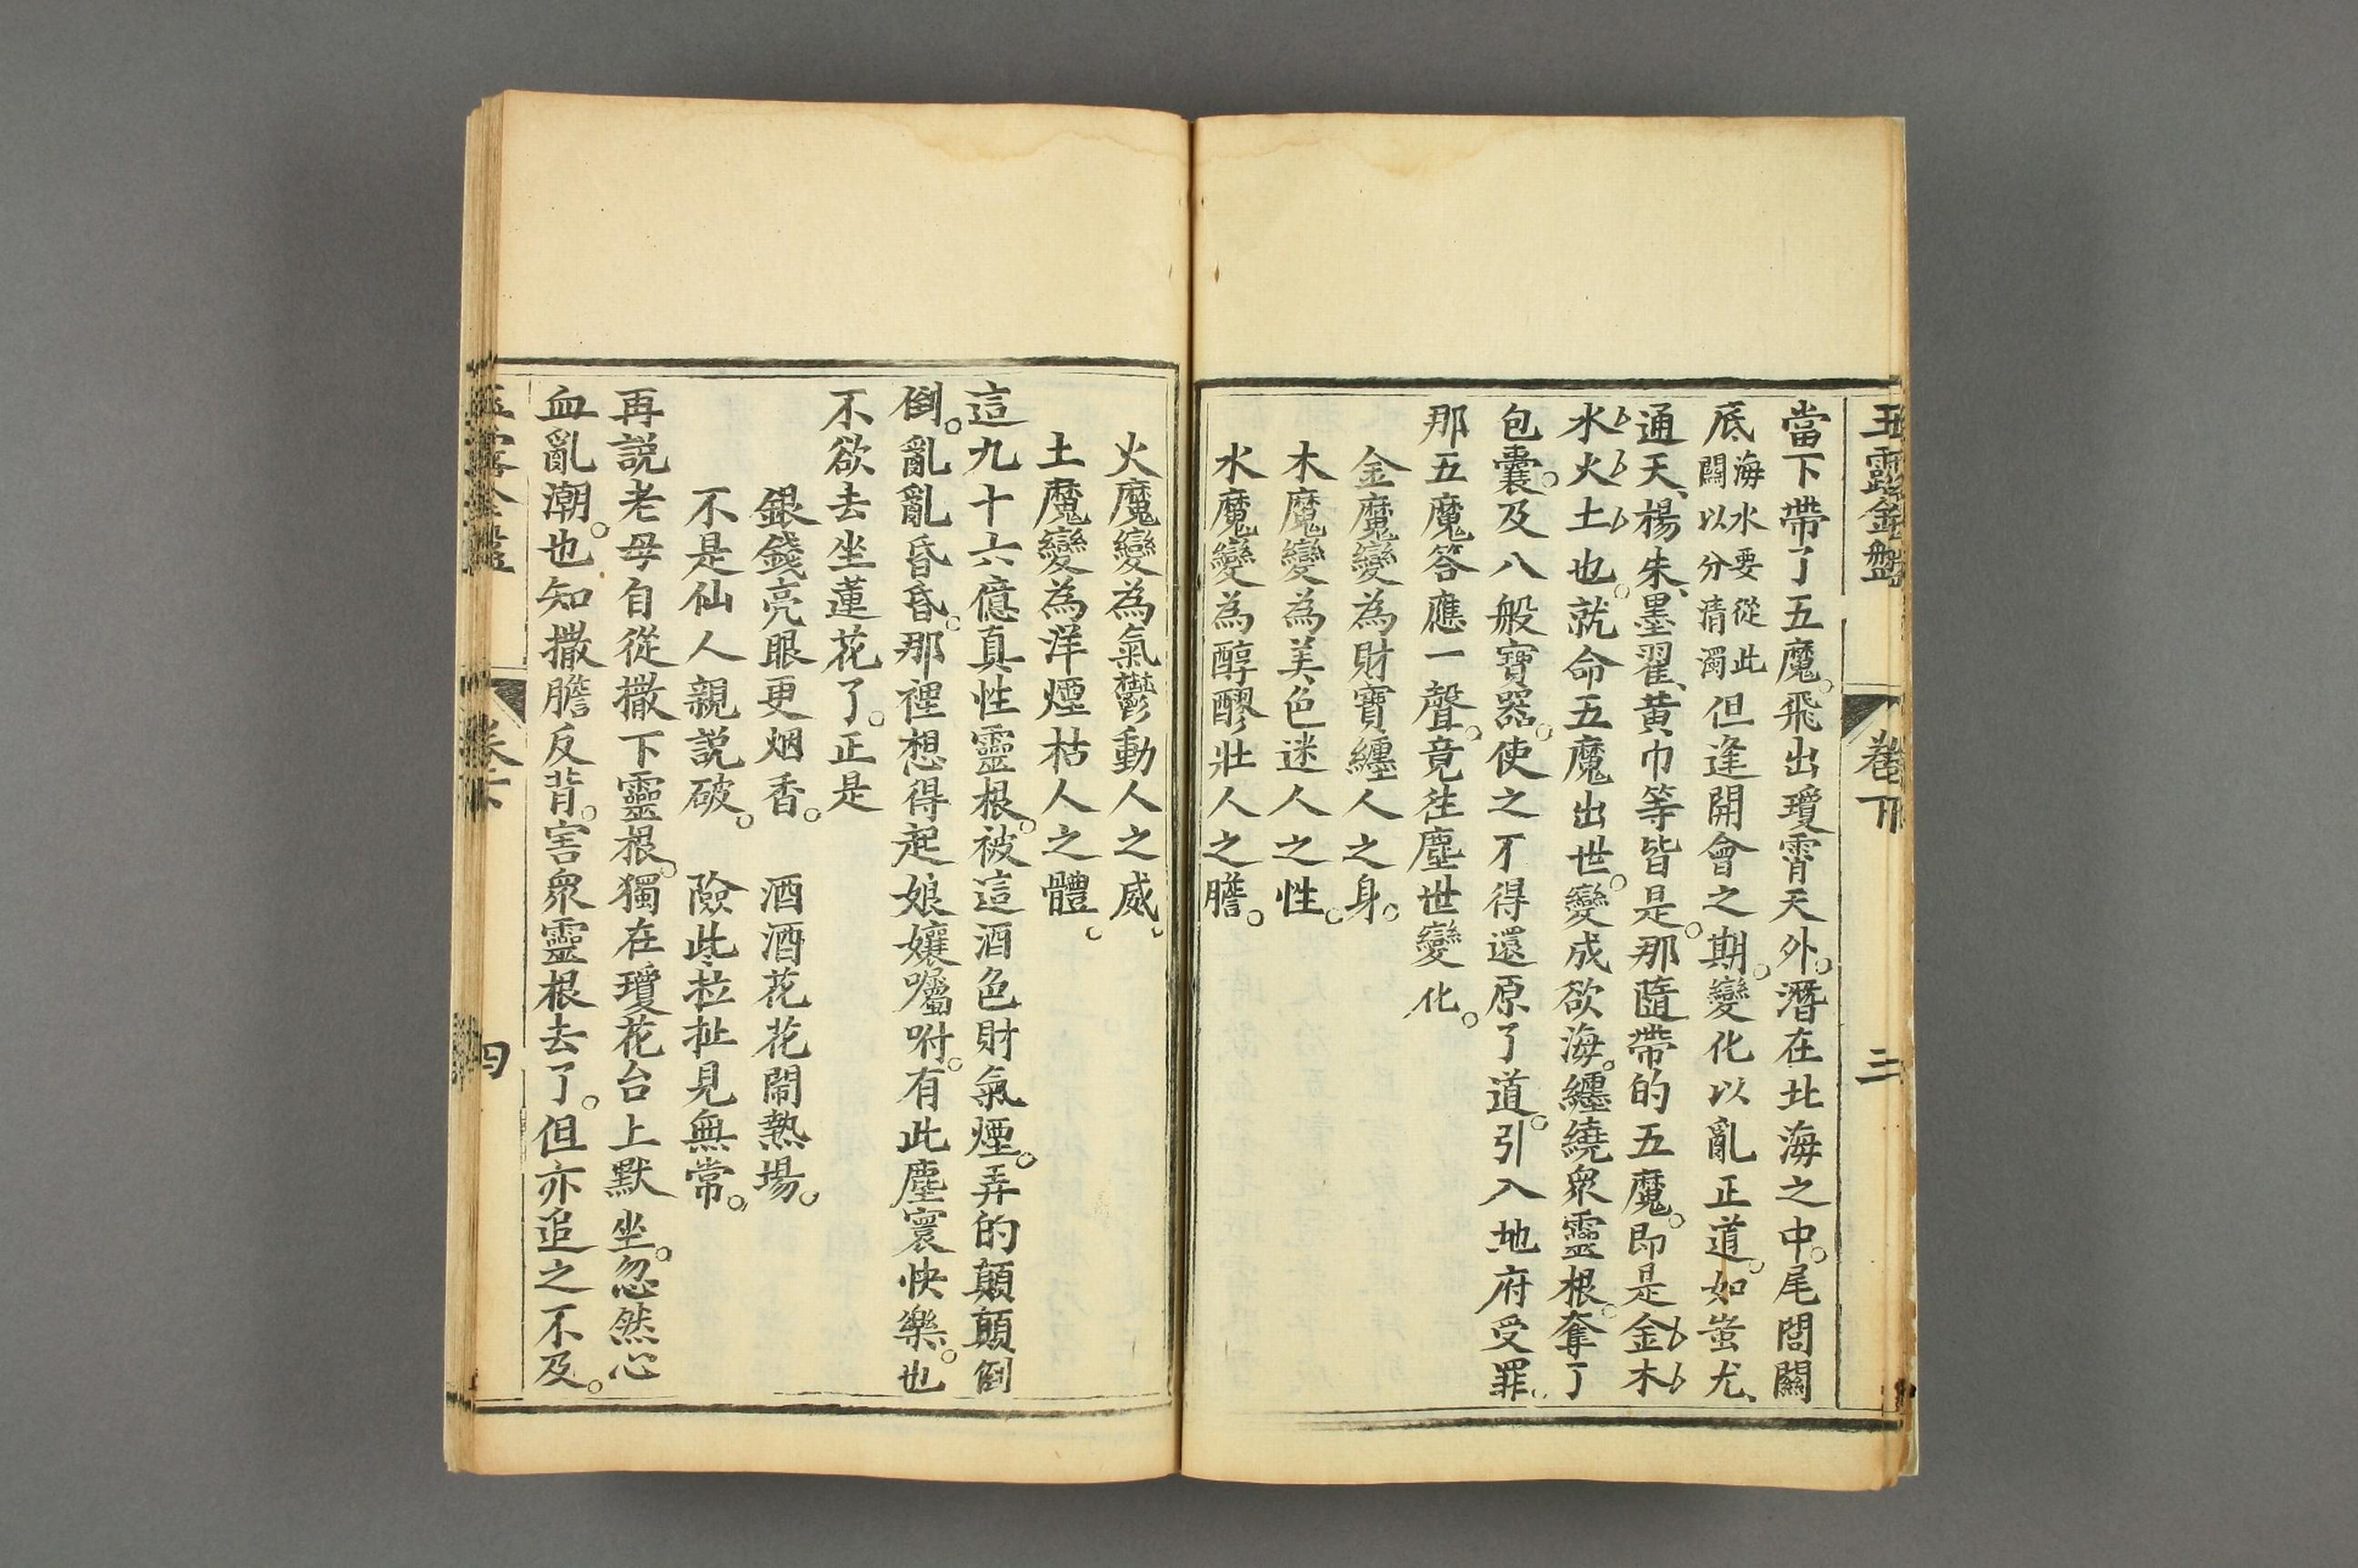 玉露金盤 卷下 三
當下帶了五魔。飛出瓊霄天外。潛在北海之中。尾閭關
底海水要從此關以分清濁但逢開會之期。變化以亂正道。如蚩尤、
通天、楊朱、墨翟、黃巾等皆是。那隨帶的五魔。即是金木
水火土也。就命五魔出世。變成欲海。纏繞眾靈根。奪了
包囊。及八般寶器。使之不得還原了道。引入地府受罪。
那五魔答應一聲。竟往塵世變化。
金魔變為財寶纏人之身。
木魔變為美色迷人之性。
水魔變為醇醪壯人之膽。
火魔變為氣鬱動人之威。
土魔變為洋煙枯人之體。
這九十六億真性靈根。被這酒色財氣煙。弄的顛顛倒
倒。亂亂昏昏。那裡想得起娘孃囑咐。有此塵寰快樂。也
不欲去坐蓮花了。正是
銀錢亮眼更烟香。 酒酒花花鬧熱場。
不是仙人親説破。 險些拉扯見無常。
再説老母自從撒下靈根。獨在瓊花台上默坐。忽然心
血亂潮。也知撒膽反背。害眾靈根去了。但亦追之不及。
玉露金盤 卷下 四